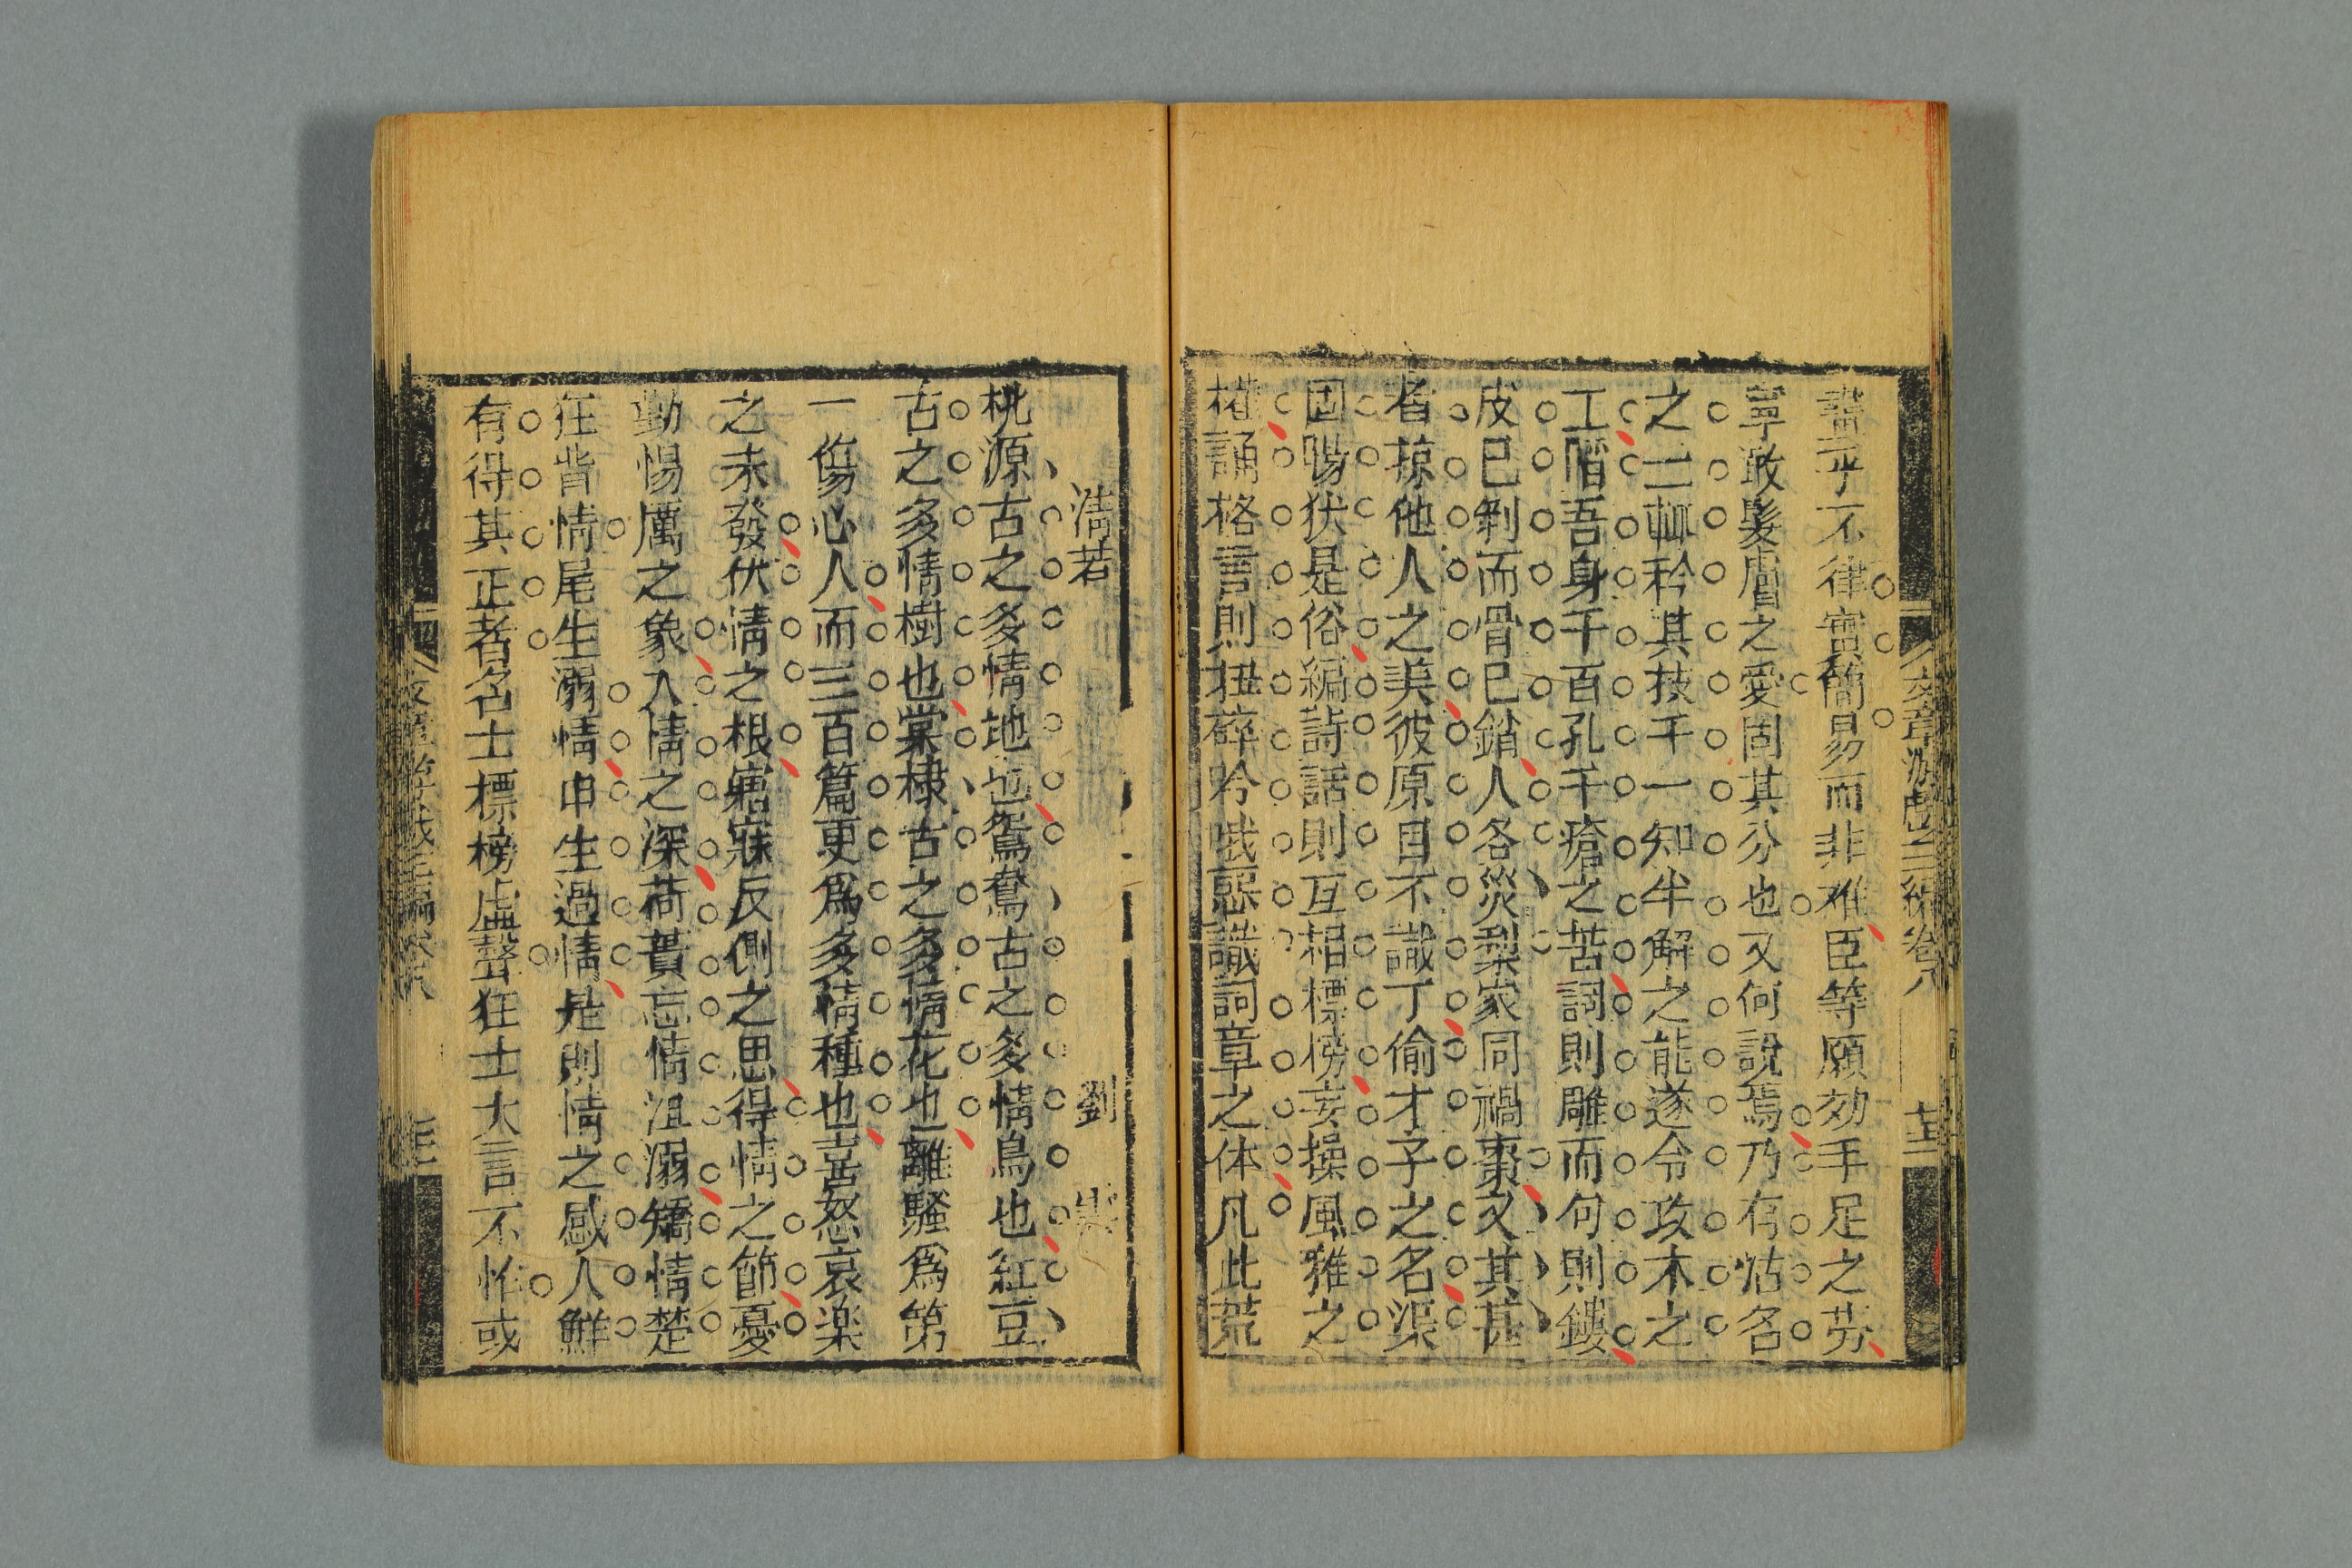 文章游戲三編卷八
書乎不律實簡易而非难臣等願効手足之劳
寧敢髮膚之愛固其分也又何說焉乃有怗名
之二 矜其技千一知半解之能遂令攻木之
工陷吾身千百孔千瘡之苦詞則雕而句則鏤
皮巳剝而骨巳銷人各災梨家同禍棗又其甚
者掠他人之美彼原目不識丁偷才子之名渠
固暢狀是俗編詩話則互相標榜妄操風雅之
權誦格言則扭碎吟哦惡識詞章之体凡此荒
清若 劉
桃源古之多情地也鴛鴦古之多情鳥也紅豆
古之多情樹也棠棣古之多情花也離騷爲第
一傷心人而三百篇更爲多情種也喜怒哀楽
之未發伏情之根寤寐反側之思得情之節憂
勤惕厲之象入情之深荷蕢忘情沮溺矯情楚
狂背情尾生溺情申生過情是則情之感人鮮
有得其正者名士標榜虛聲狂士大言不怍或